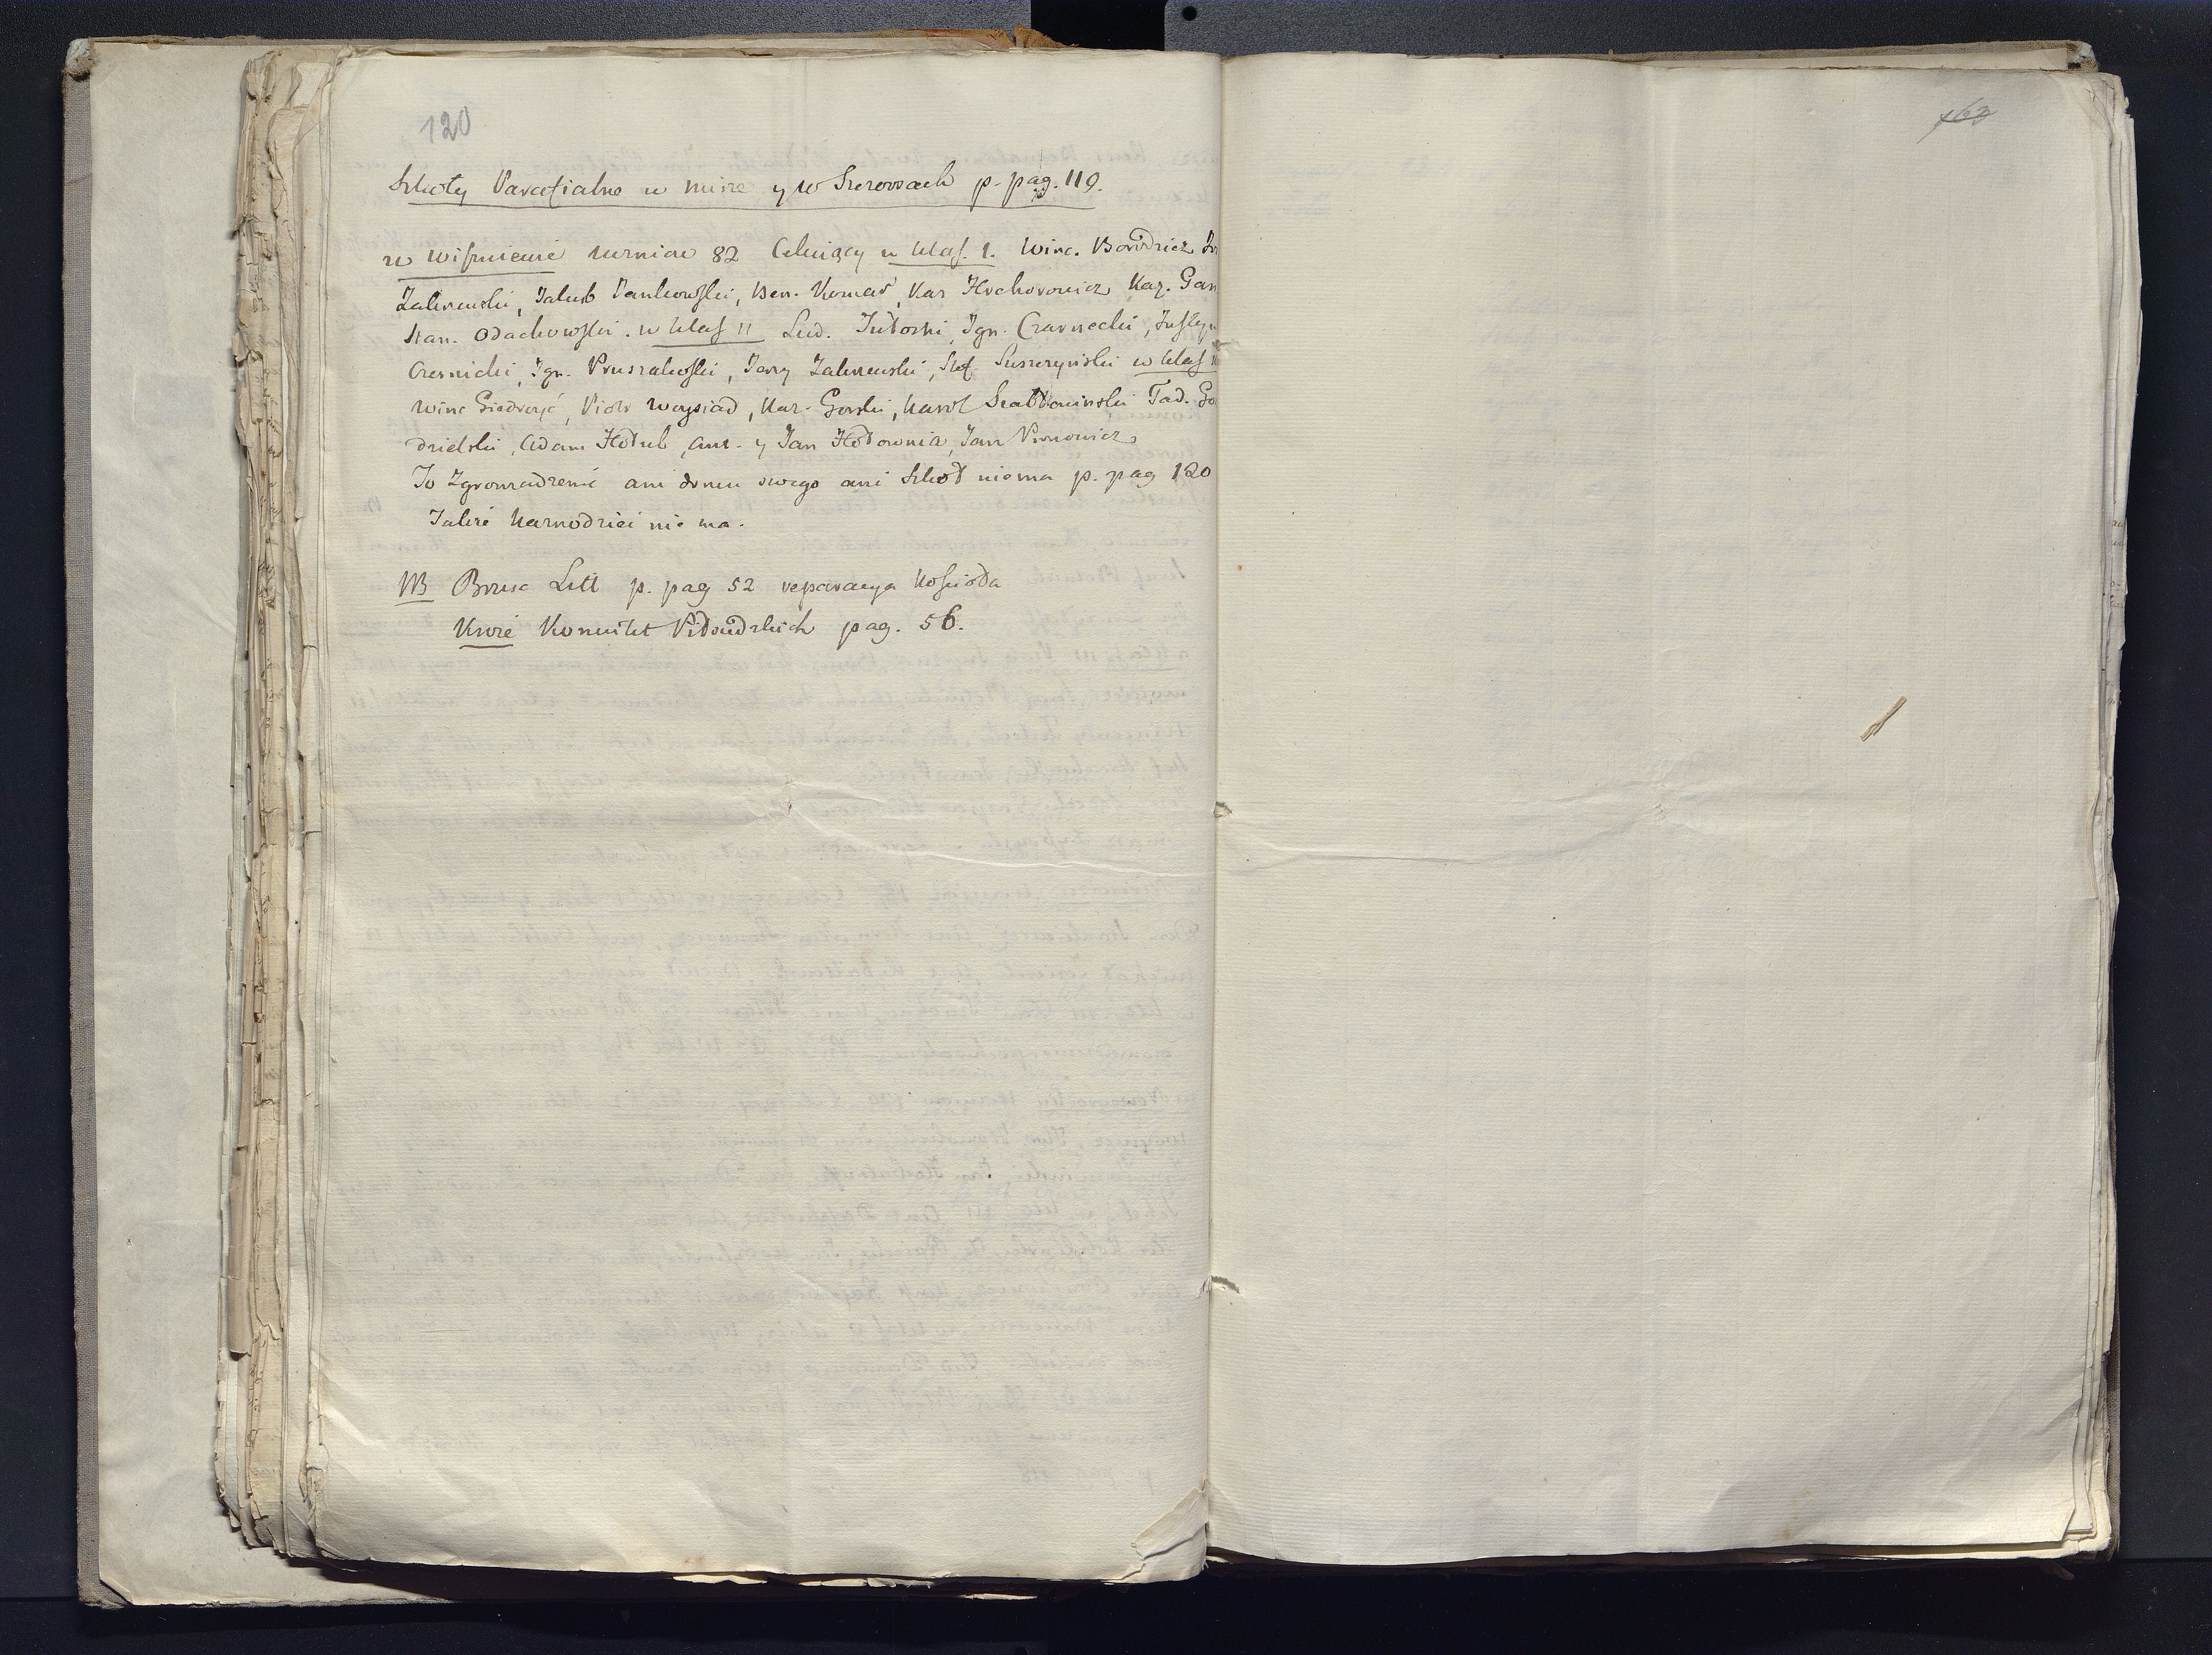 120
Szkoły Parafialne w mirze y w Sznrowach p. pag. 119.
w Wiszniewie Uczniow 82 Celuiący w klas. 1. Winc. Borodzicz
Zakrzewski, Jakub Jankowski, Ben. Komar, Kaz. Hrehorowicz, Kaz. Gan
Stan. Odachowski. w klas II Lud. Jutorski, Ign. Czarnecki, Justyn
Czernicki, Ign. Pruszakowski, Jerzy Zakrzewski, Stef. Suszczynski w klas
Winc Giedroyć, Piotr Woysiad, Kaz. Gorski, Karol Szabłowinski Tad. Go
dzielski, Adam Hołub, Ant. y Jan Hołownia, Jan Pionowicz
To Zgromadzenie ani domu swego ani Szkoł niema p. pag 120
Także Karnodziei nie ma.
NB Brzesc Litt p. pag 52 reparacya Kościoła
Kroże Komitet Piłsudzkich pag. 56.
163